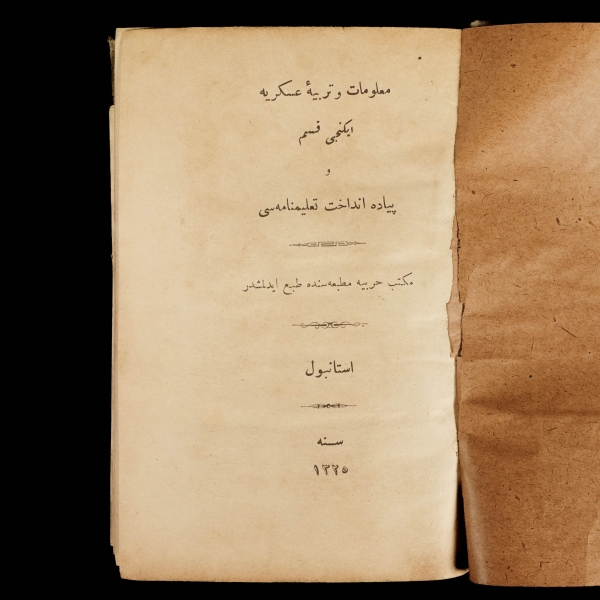 معلومات و تربیۀ عسكریه
ایكنجی قسم
و
پیاده انداخت تعلیمنامه‌سی
مكتب حربیه مطبعه‌سنده طبع ایدلمشدر
استانبول
سـنه
١٣٢٥